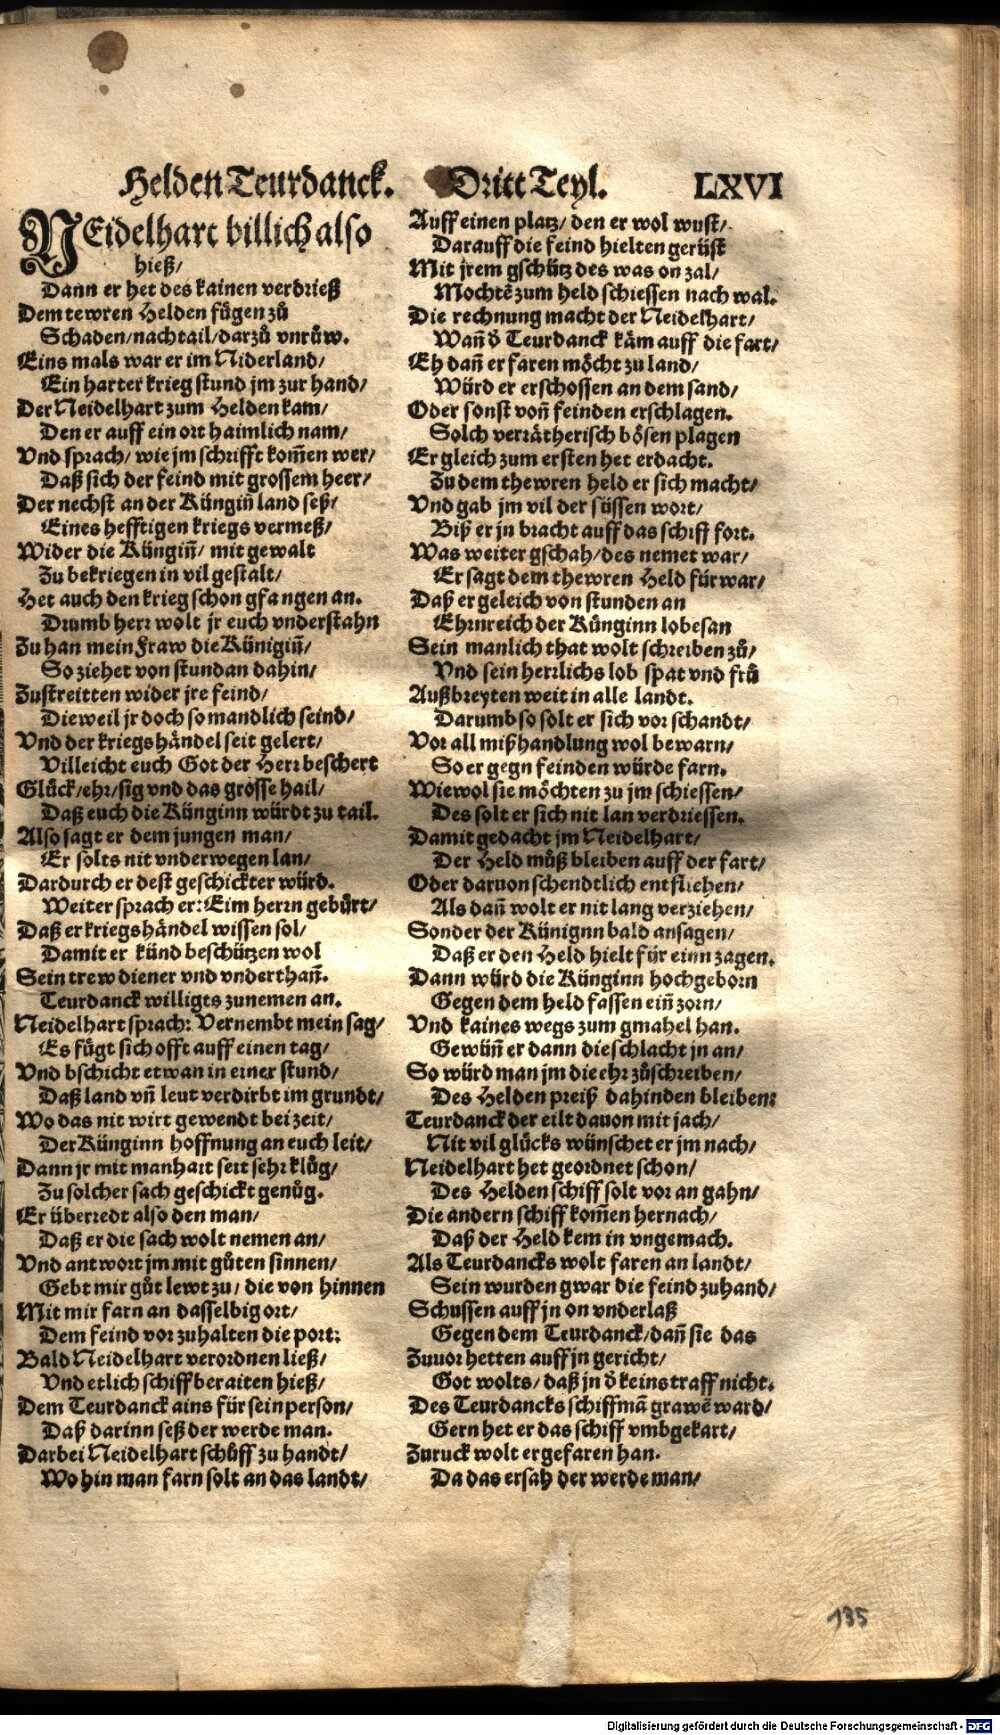 Helden Teurdanck. Dritt Teyl. LXVI
NEidelhart billich also
hieß/
Dann er het des kainen verdrieß
Dem tewren Helden fůgen zů
Schaden/nachtail/darzů vnrůw.
Eins mals war er im Niderland/
Ein harter krieg stund jm zur hand/
Der Neidelhart zum Helden kam/
Den er auff ein ort haimlich nam/
Vnd sprach/ wie jm schrifft kom̃en wer/
Daß sich der feind mit grossem heer/
Der nechst an der Küngin̄ land seß/
Eines hefftigen kriegs vermeß/
Wider die Küngin̄/ mit gewalt
Zu bekriegen in vil gestalt/
Het auch den krieg schon gfangen an.
Drumb herr wolt jr euch vnderstahn
Zu han mein Fraw die Künigin̄/
So ziehet von stundan dahin/
Zustreitten wider jre feind/
Dieweil jr doch so mandlich seind/
Vnd der kriegshändel seit gelert/
Villeicht euch Got der Herr beschert
Glück/ehr/sig vnd das grosse hail/
Daß euch die Künginn würdt zu tail.
Also sagt er dem jungen man/
Er solts nit vnderwegen lan/
Dardurch er dest geschickter würd.
Weiter sprach er: Eim herrn gebůrt/
Daß er kriegshändel wissen sol/
Damit er künd beschützen wol
Sein trew diener vnd vnderthan̄.
Teurdanck willigts zunemen an.
Neidelhart sprach: Vernembt mein sag/
Es fügt sich offt auff einen tag/
Vnd bschicht etwan in einer stund/
Daß land vn̄ leut verdirbt im grundt/
Wo das nit wirt gewendt bei zeit/
Der Künginn hoffnung an euch leit/
Dann jr mit manhart seit sehr klůg/
Zu solcher sach geschickt genůg.
Er überredt also den man/
Daß er die sach wolt nemen an/
Vnd antwort jm mit gůten sinnen/
Gebt mir gůt lewt zu/ die von hinnen
Mit mir farn an dasselbig ort/
Dem feind vor zuhalten die port:
Bald Neidelhart verordnen ließ/
Vnd etlich schiff beraiten hieß/
Dem Teurdanck ains für sein person/
Daß darinn seß der werde man.
Darbei Neidelhart schůff zu handt/
Wo hin man farn solt an das landt/
Auff einen platz/ den er wol wust/
Darauff die feind hielten gerüst
Mit jrem gschütz des was on zal/
Mochtē zum held schiessen nach wal.
Die rechnung macht der Neidelhart/
Wan̄ d̓ Teurdanck käm auff die fart/
Eh dan̄ er faren möcht zu land/
Würd er erschossen an dem sand/
Oder sonst von̄ feinden erschlagen.
Solch verrätherisch bösen plagen
Er gleich zum ersten het erdacht.
Zu dem thewren held er sich macht/
Vnd gab jm vil der süssen wort/
Biß er jn bracht auff das schiff fort.
Was weiter gschah/des nemet war/
Er sagt dem thewren Held für war/
Daß er geleich von stunden an
Ehrnreich der Künginn lobesan
Sein manlich that wolt schreiben zů/
Vnd sein herrlichs lob spat vnd frů
Außbreyten weit in alle landt.
Darumb so solt er sich vor schandt/
Vor all mißhandlung wol bewarn/
So er gegn feinden würde farn.
Wiewol sie möchten zu jm schiessen/
Des solt er sich nit lan verdriessen.
Damit gedacht jm Neidelhart/
Der Held můß bleiben auff der fart/
Oder daruon schendtlich entfliehen/
Als dan̄ wolt er nit lang verziehen/
Sonder der Künignn bald ansagen/
Daß er den Held hielt für einn zagen.
Dann würd die Künginn hochgeborn
Gegen dem held fassen ein̄ zorn/
Vnd kaines wegs zum gmahel han.
Gewün̄ er dann die schlacht jn an/
So würd man jm die ehr zůschreiben/
Des Helden preiß dahinden bleiben:
Teurdanck der eilt dauon mit jach/
Nit vil glücks wünschet er jm nach/
Neidelhart het geordnet schon/
Des Helden schiff solt vor an gahn/
Die andern schiff kom̃en hernach/
Daß der Held kem in vngemach.
Als Teurdancks wolt faren an landt/
Sein wurden gwar die feind zuhand/
Schussen auff jn on vnderlaß
Gegen dem Teurdanck/dan̄ sie das
Zuuor hetten auff jn gericht/
Got wolts/ daß jn d̓ keins traff nicht.
Des Teurdancks schiffmā grawē ward/
Gern het er das schiff vmbgekart/
Zuruck wolt er gefaren han.
Da das ersah der werde man/
135
Digitalisierung gefördert durch die Deutsche Forschungsgemeinschaft - DFG